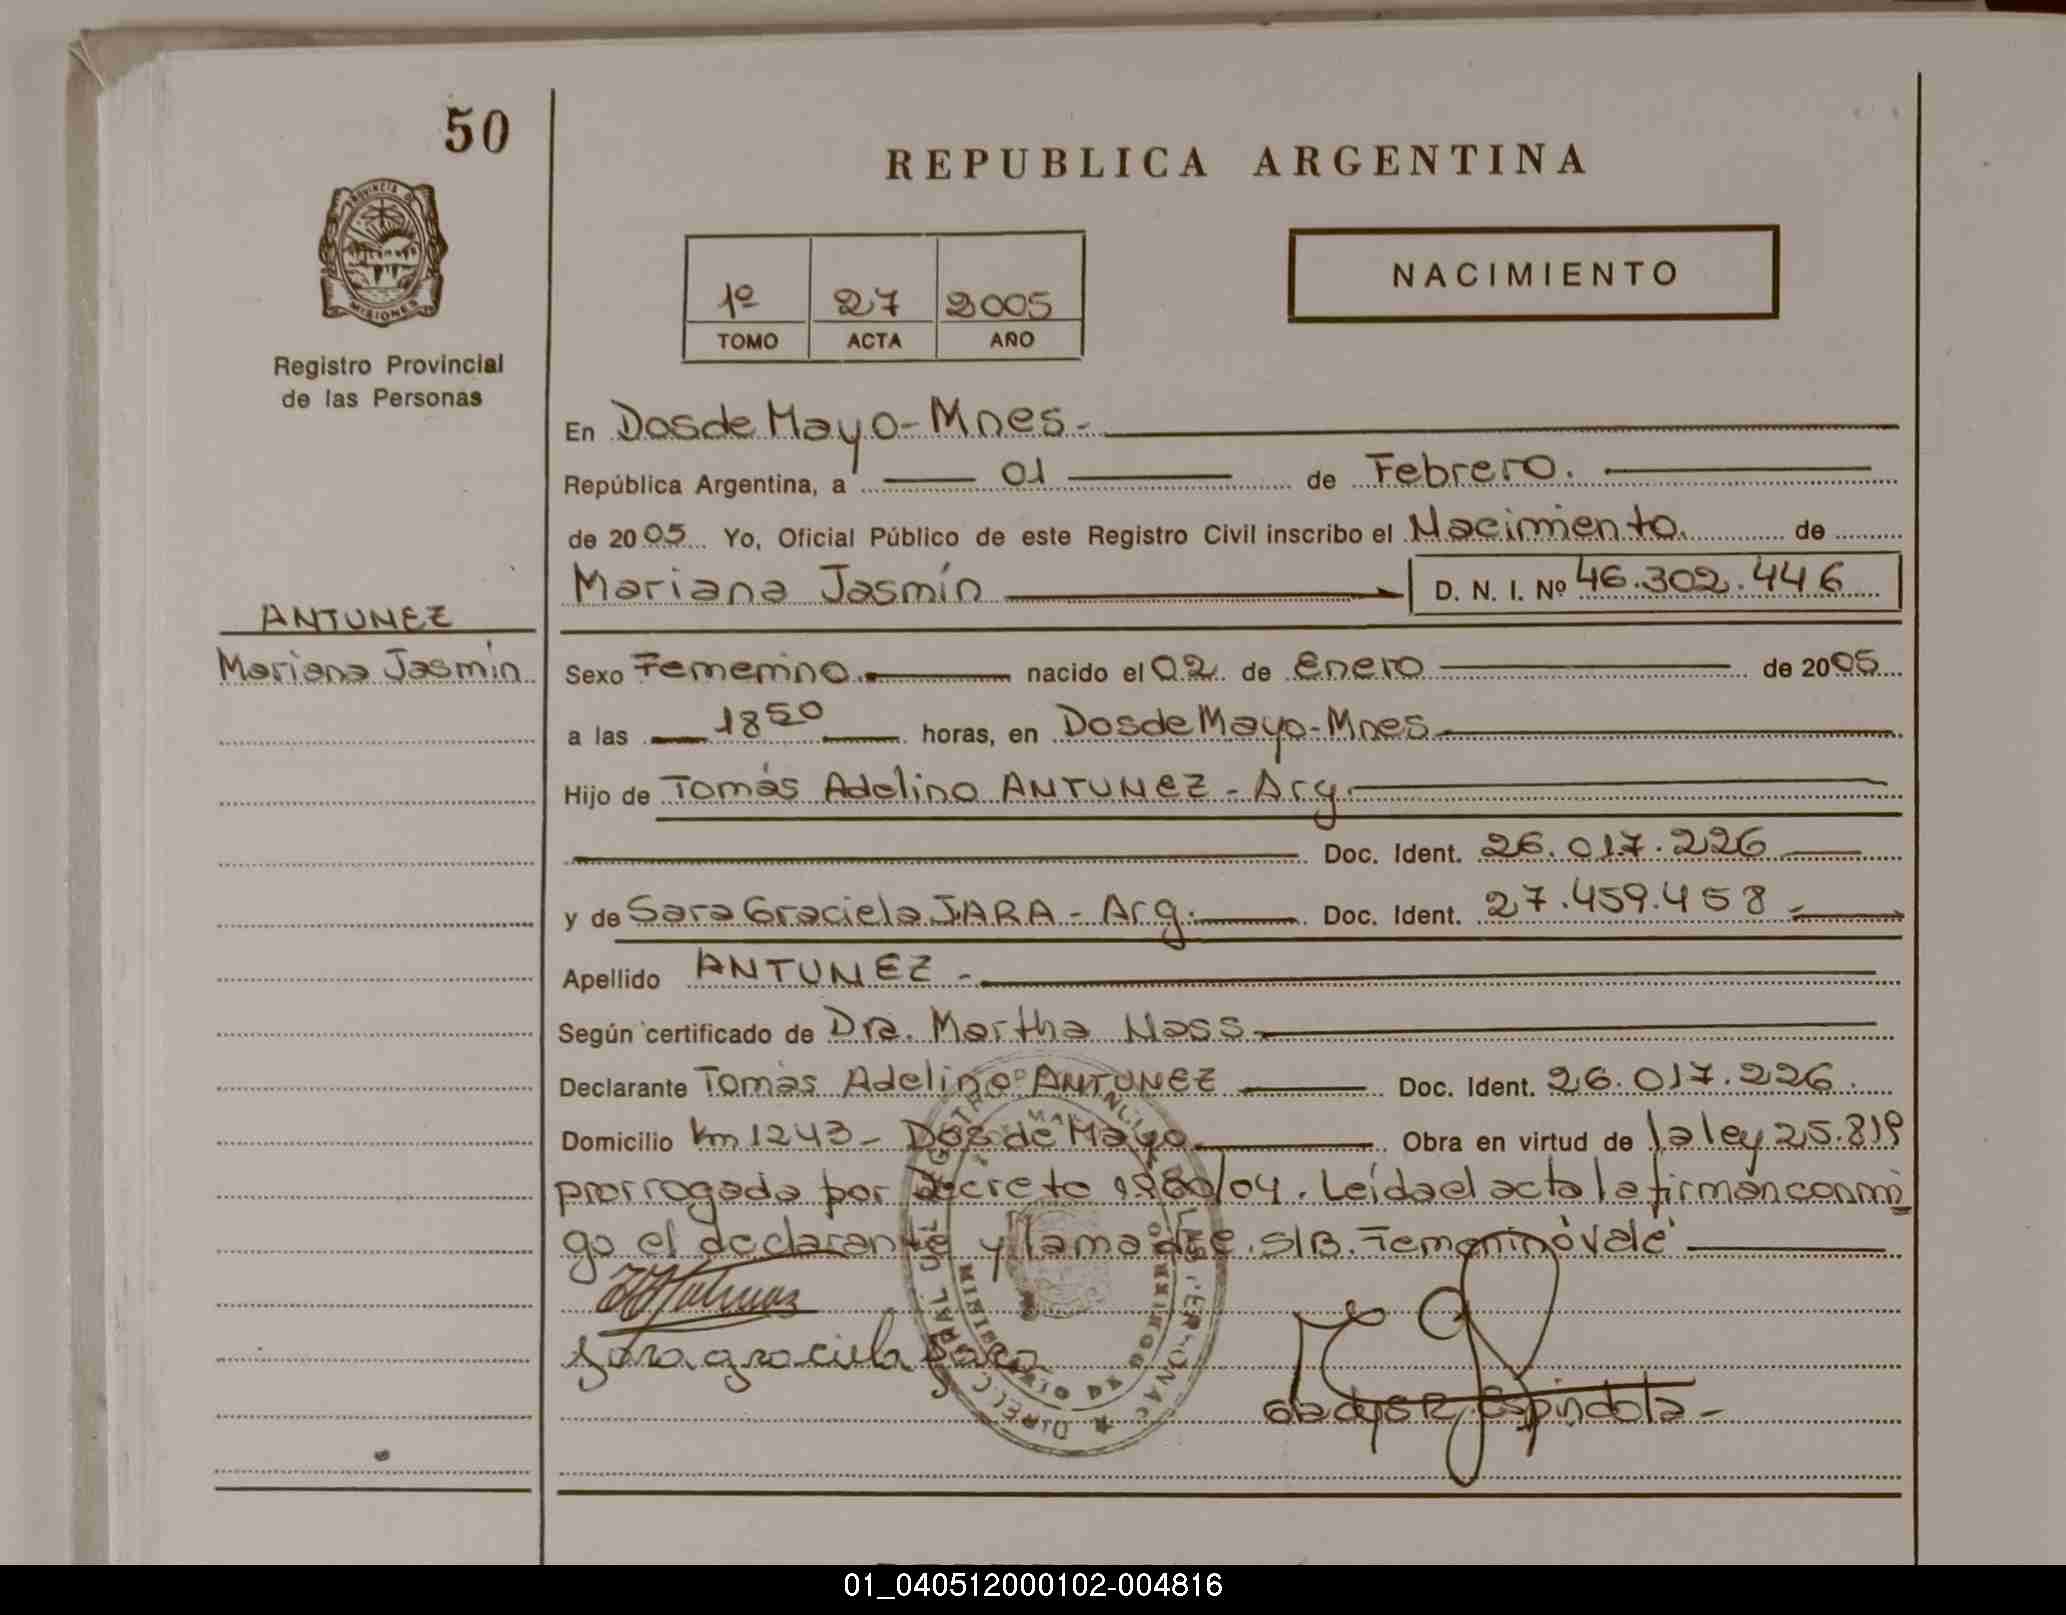 50
REPUBLICA ARGENTINA
PROVINCIA D
MISIONES
Registro Provincial
de las Personas
NACIMIENTO
1º 27 2005
TOMO ACTA AÑO
En Dos de Mayo - Mnes.-
República Argentina, a 01 de Febrero.
de 2005 Yo, Oficial Público de este Registro Civil inscribo el Nacimiento de
Mariana Jasmín D. N. I. Nº 46.302.446
ANTUNEZ
Mariana Jasmín
Sexo Femenino nacido el 02 de Enero de 2005
a las 18 50 horas, en Dos de Mayo - Mnes
Hijo de Tomás Adelino ANTUNEZ - Arg.
Doc. Ident. 26.017.226
y de Sara Graciela JARA - Arg. Doc. Ident. 27.459.458
Apellido ANTUNEZ -
Según certificado de Dra. Martha Nass
Declarante Tomás Adelino ANTUNEZ Doc. Ident. 26.017.226.
Domicilio km 1243 - Dos de Mayo Obra en virtud de la ley 25.819
prorrogada por decreto /04. Leída el acta la firman conmi
go el declarante y la madre. S/B. Femenino vale
Sara graciela Jara
Gladys R. Espindola -
01_040512000102-004816